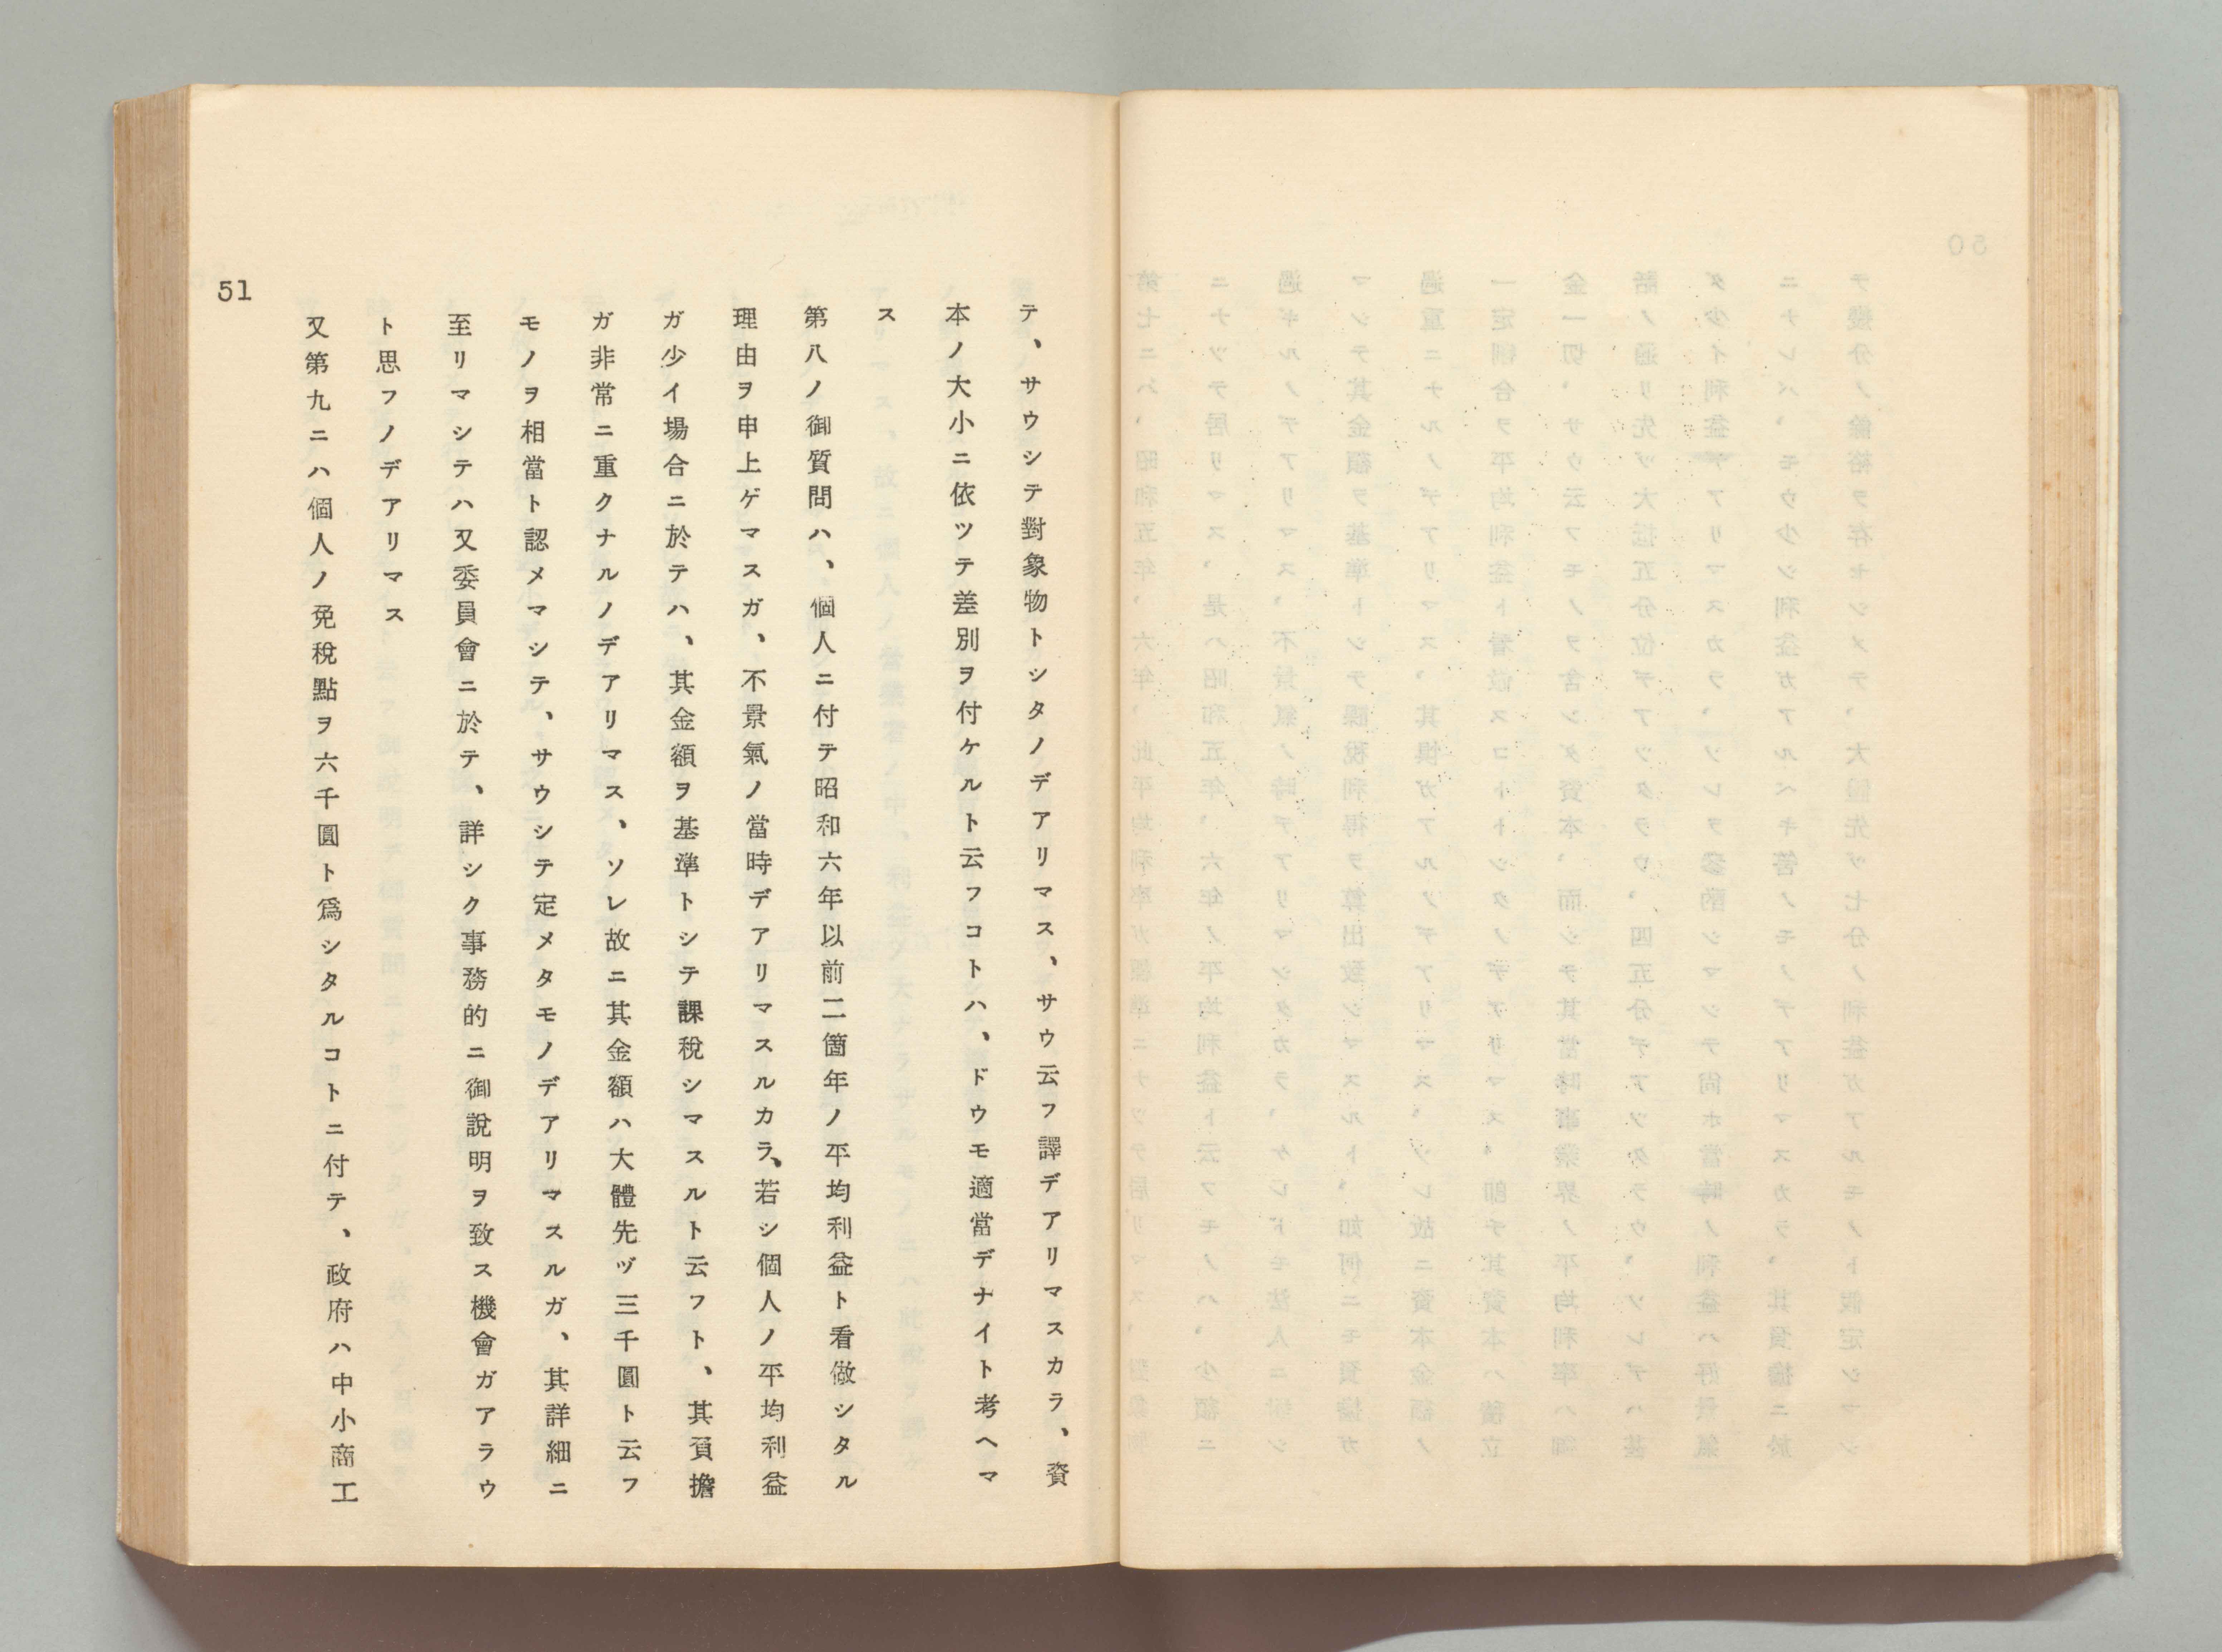 テ、サウシテ對象物トシタノデアリマス、サウ云フ譯デアリマスカラ、資
本ノ大小ニ依ツテ差別ヲ付ケルト云フコトハ、ドウモ適當デナイト考ヘマ
ス
第八ノ御質問ハ、個人ニ付テ昭和六年以前二箇年ノ平均利益ト看做シタル
理由ヲ申上ゲマスガ、不景氣ノ當時デアリマスルカラ、若シ個人ノ平均利益
ガ少イ場合ニ於テハ、其金額ヲ基準トシテ課稅シマスルト云フト、其負擔
ガ非常ニ重クナルノデアリマス、ソレ故ニ其金額ハ大體先ヅ三千圓ト云フ
モノヲ相當ト認メマシテ、サウシテ定メタモノデアリマスルガ、其詳細ニ
至リマシテハ又委員會ニ於テ、詳シク事務的ニ御說明ヲ致ス機會ガアラウ
ト思フノデアリマス
又第九ニハ個人ノ免稅點ヲ六千圓ト爲シタルコトニ付テ、政府ハ中小商工
51